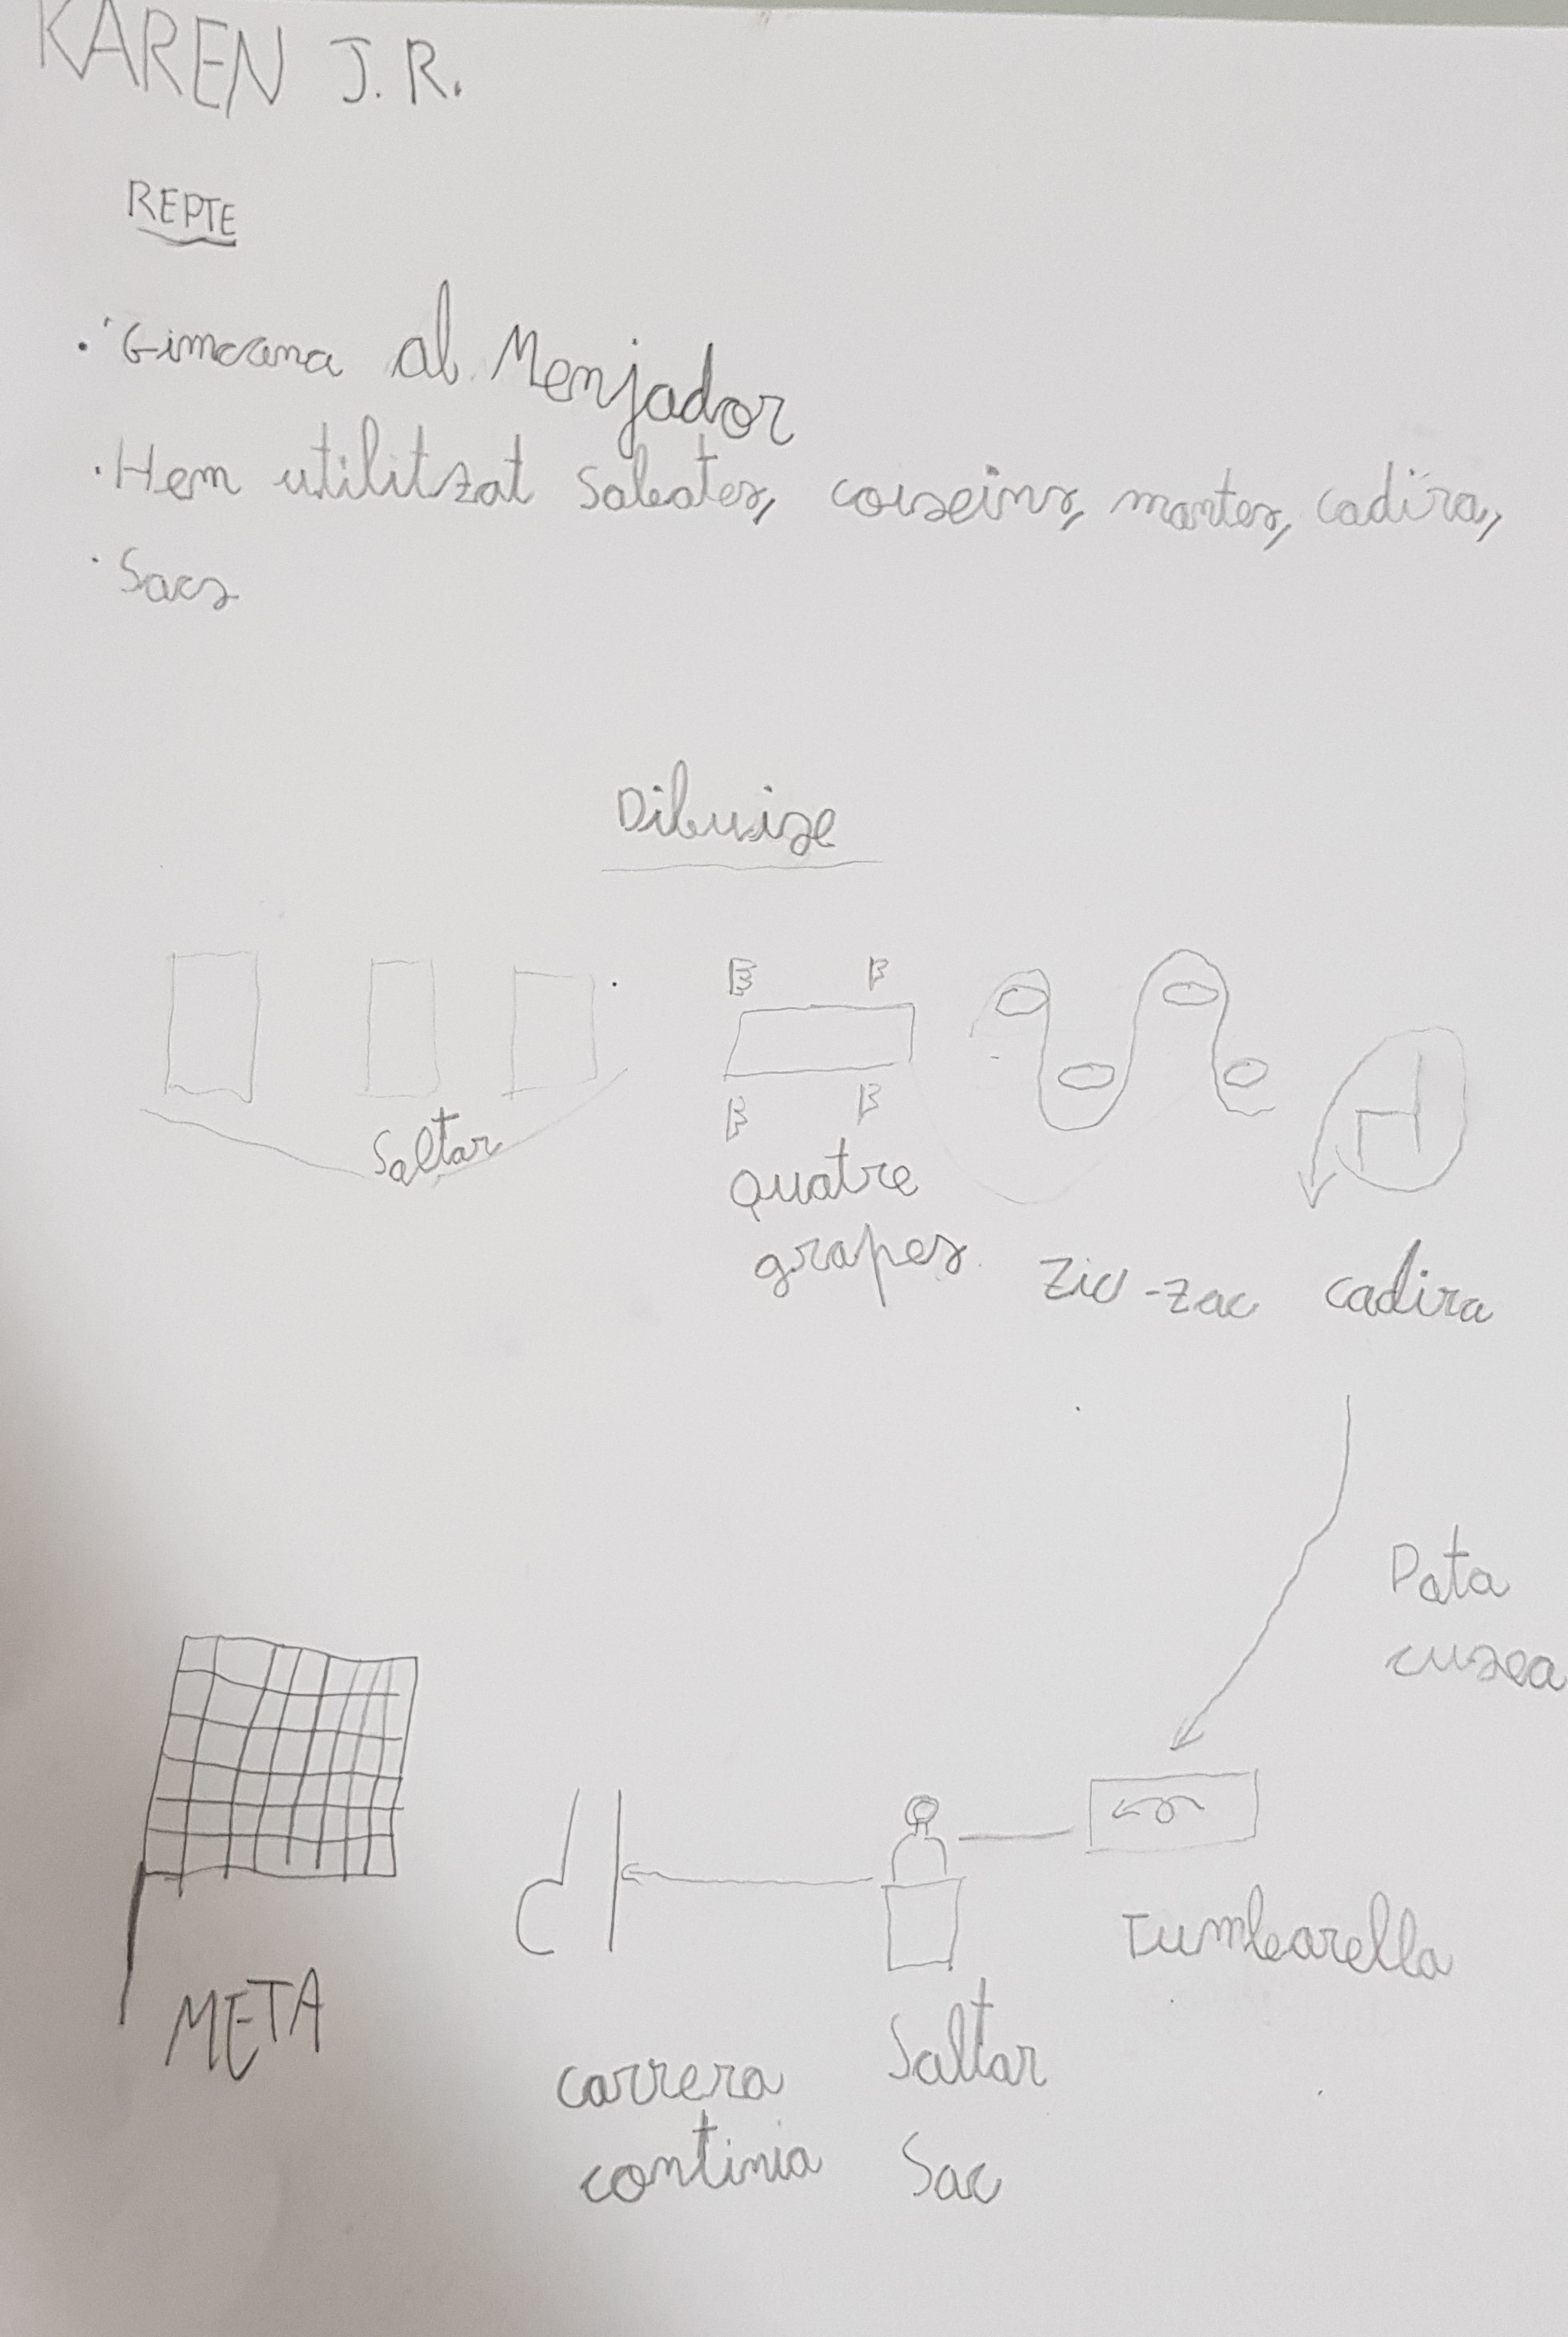 KAREN J. R.
REPTE
· Gimcana al Menjador
· Hem utilitzat Sabates, coixeins, mantes, cadira,
· Sacs
Dibuixe
Saltar
quatre
grapes
zic-zac
cadira
Pata
cuxea
META
carrera
continia
Saltar
Sac
Tumbarella